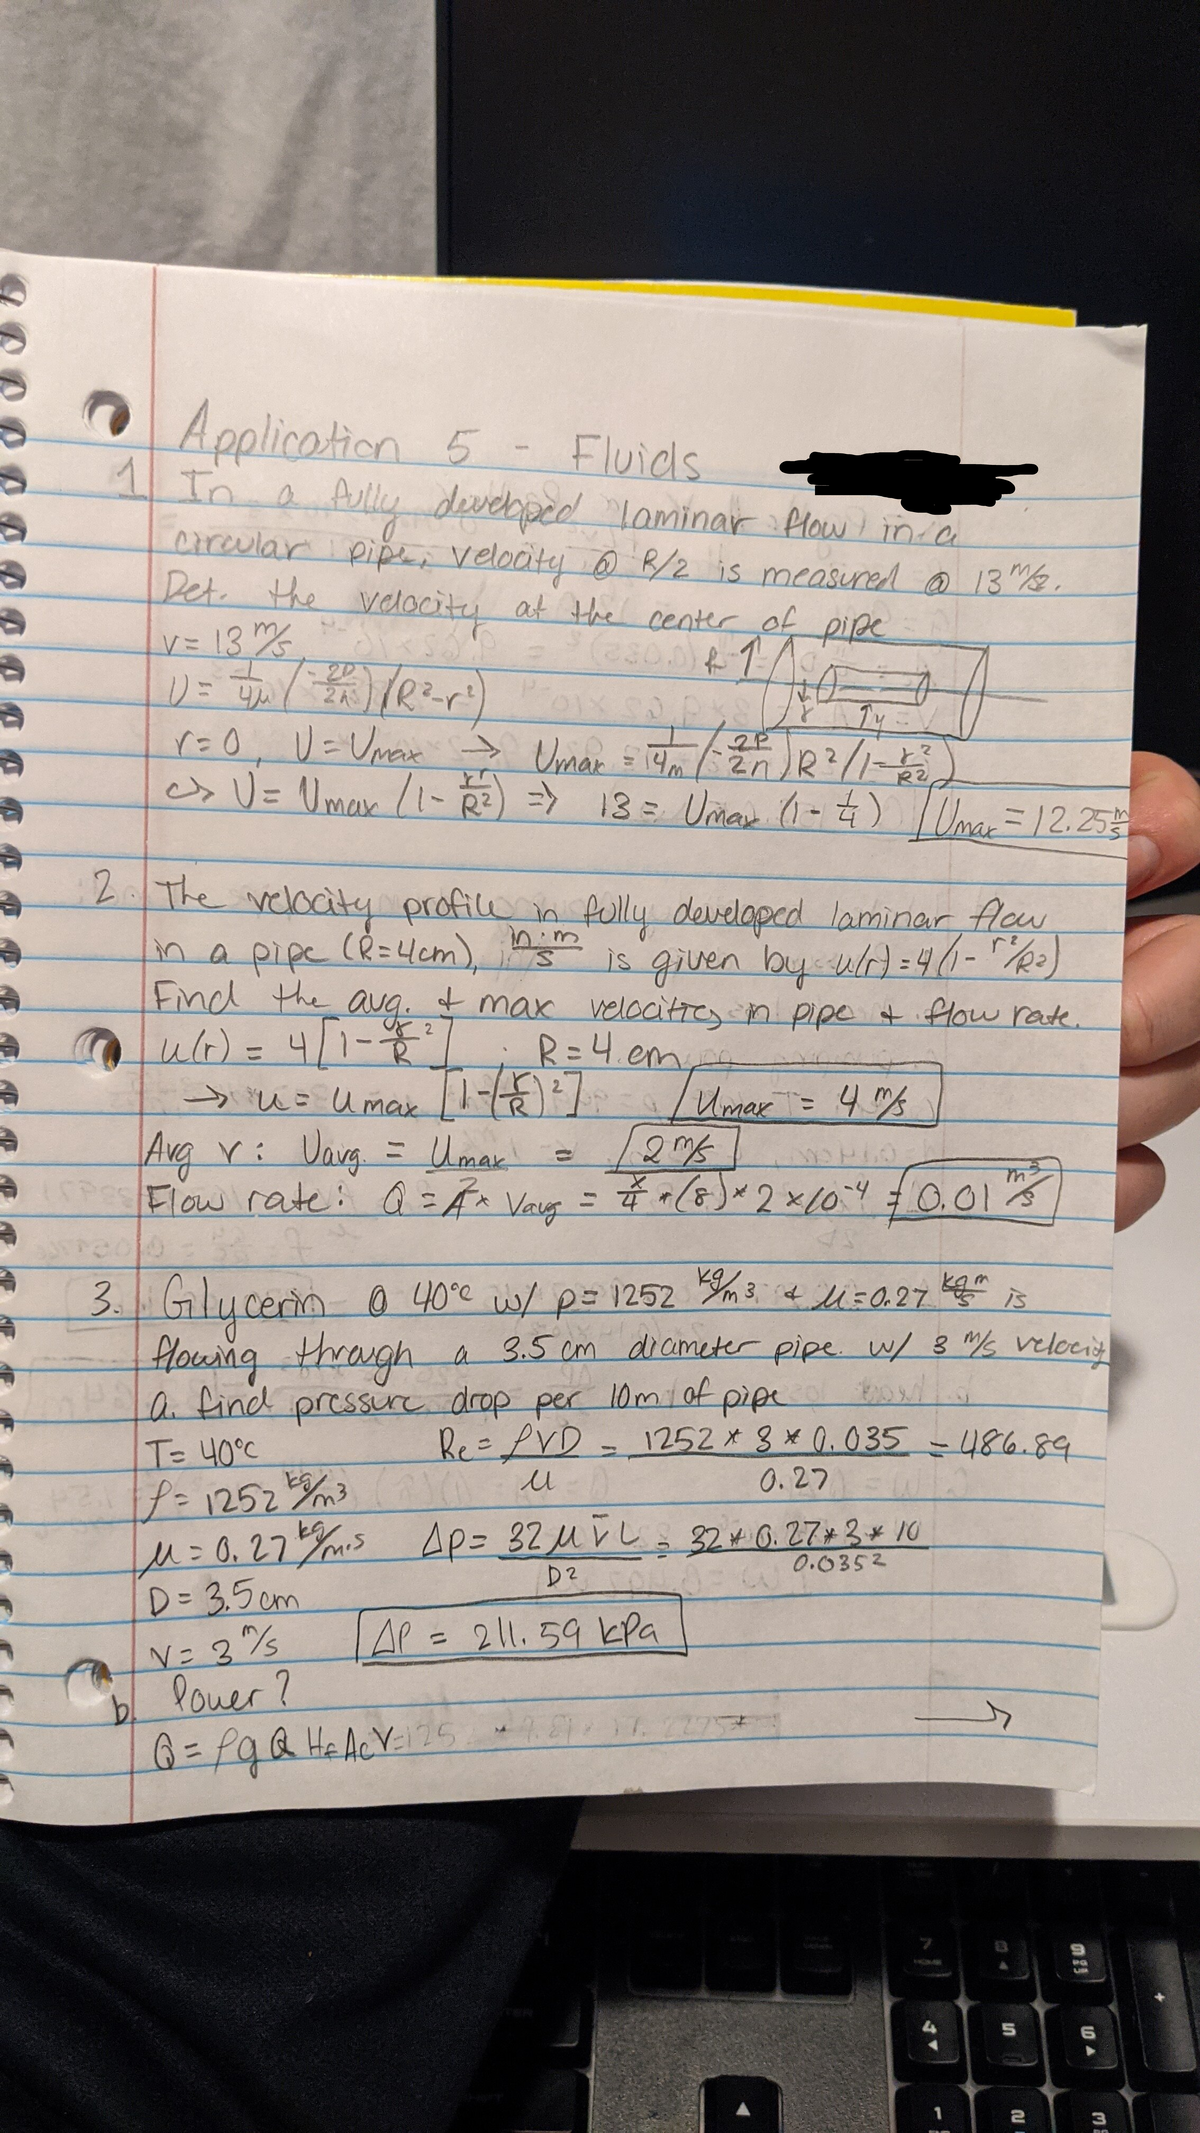 Application 5 - Fluids
1 In a fully developed laminar flow in a
circular pipe, velocity @ R/2 is measured @ 13 m/s.
Det. the velocity at the center of pipe
V = 13 m/s
R ↑
U = 1/4μ (-2P/2n) (R²-r²)
r ↑ y
r=0, U = Umax → Umax = 1/4m (-2P/2n) R² (1-r²/R²)
↪ U = Umax (1- r²/R²) ⇒ 13 = Umax (1- 1/4) Umax = 12.25 m/s
2. The velocity profile in fully developed laminar flow
in a pipe (R=4cm), in m/s is given by u(r) = 4(1- r²/R²)
Find the avg. + max velocities in pipe + flow rate.
u(r) = 4[1- r/R ²] R = 4 cm
→ u = umax [1-(r/R)²] Umax = 4 m/s
Avg v: Uavg. = Umax/2 = 2 m/s
Flow rate: Q = A * Vavg = π/4 * (8) * 2 × 10⁻⁴ = 0.01 m³/s
3. Glycerin @ 40°C w/ ρ = 1252 kg/m³ + μ = 0.27 is
flowing through a 3.5 cm diameter pipe w/ 3 m/s velocity
a. find pressure drop per 10m of pipe
T = 40°C Re = ρVD/μ = 1252 * 3 * 0.035 / 0.27 = 486.89
ρ = 1252 kg/m³
μ = 0.27 kg/m·s ΔP = 32 μ V̄ L / D² = 32 * 0.27 * 3 * 10 / 0.035²
D = 3.5 cm
V = 3 m/s ΔP = 211.59 kPa
b. Power?
→
Q = ρ g Q Hf Ac V =
7 HOME
8
9 PG UP
+
4
5
6
1
2
3